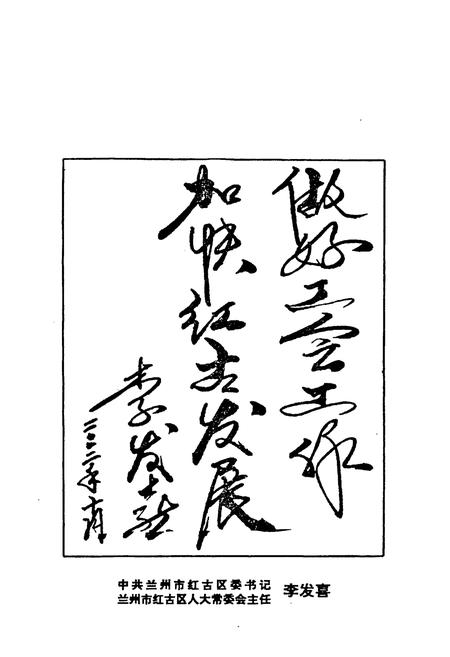 做好工会工作
加快红古发展
李发喜
二〇〇二年十月
中共兰州市红古区委书记
兰州市红古区人大常委会主任 李发喜